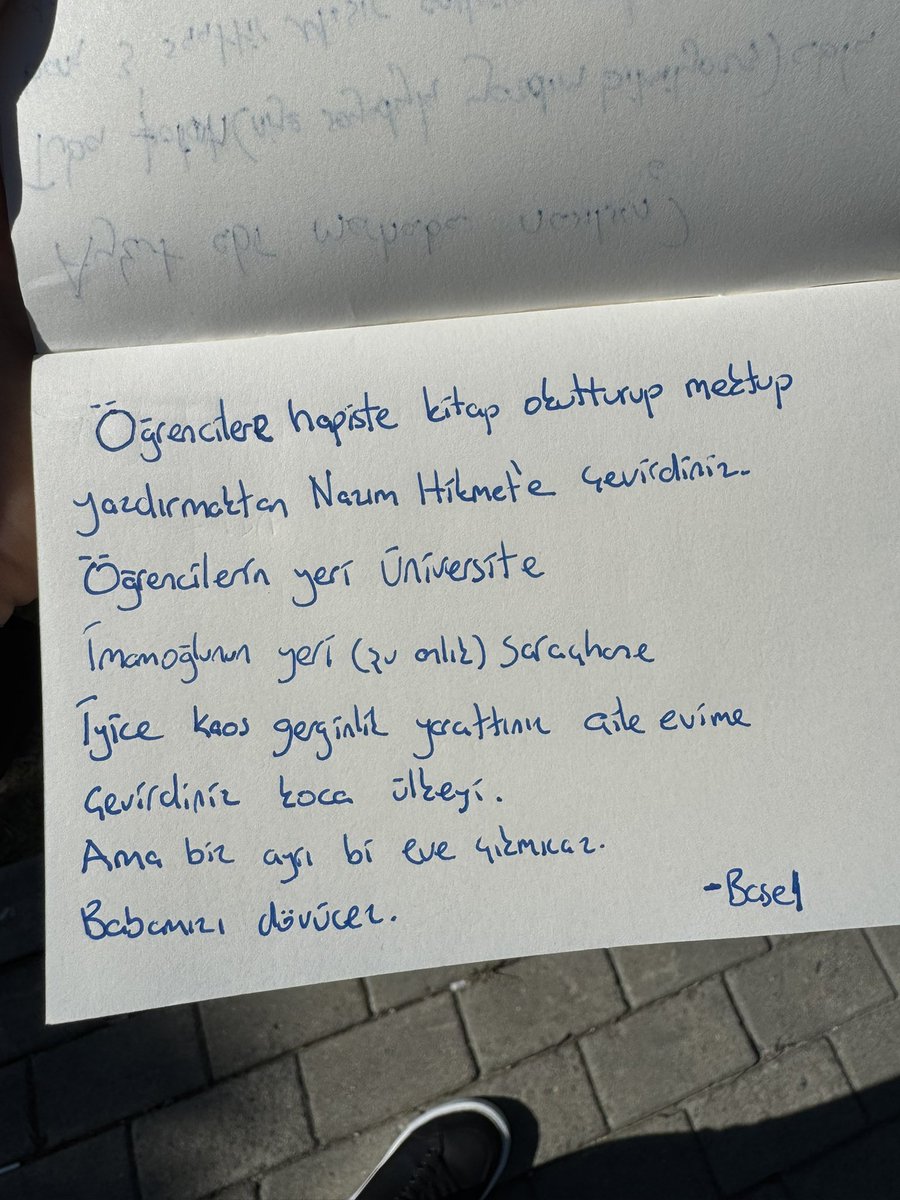 Öğrencilere hapiste kitap okutturup mektup
yazdırmaktan Nazım Hikmet'e çevirdiniz.
Öğrencilerin yeri üniversite
İmamoğlunun yeri (şu anlık) Saraçhane
İyice kaos gerginlik yarattınız aile evime
çevirdiniz koca ülkeyi.
Ama biz ayrı bi eve çıkmıcaz.
Babamızı dövücez.
-Basel